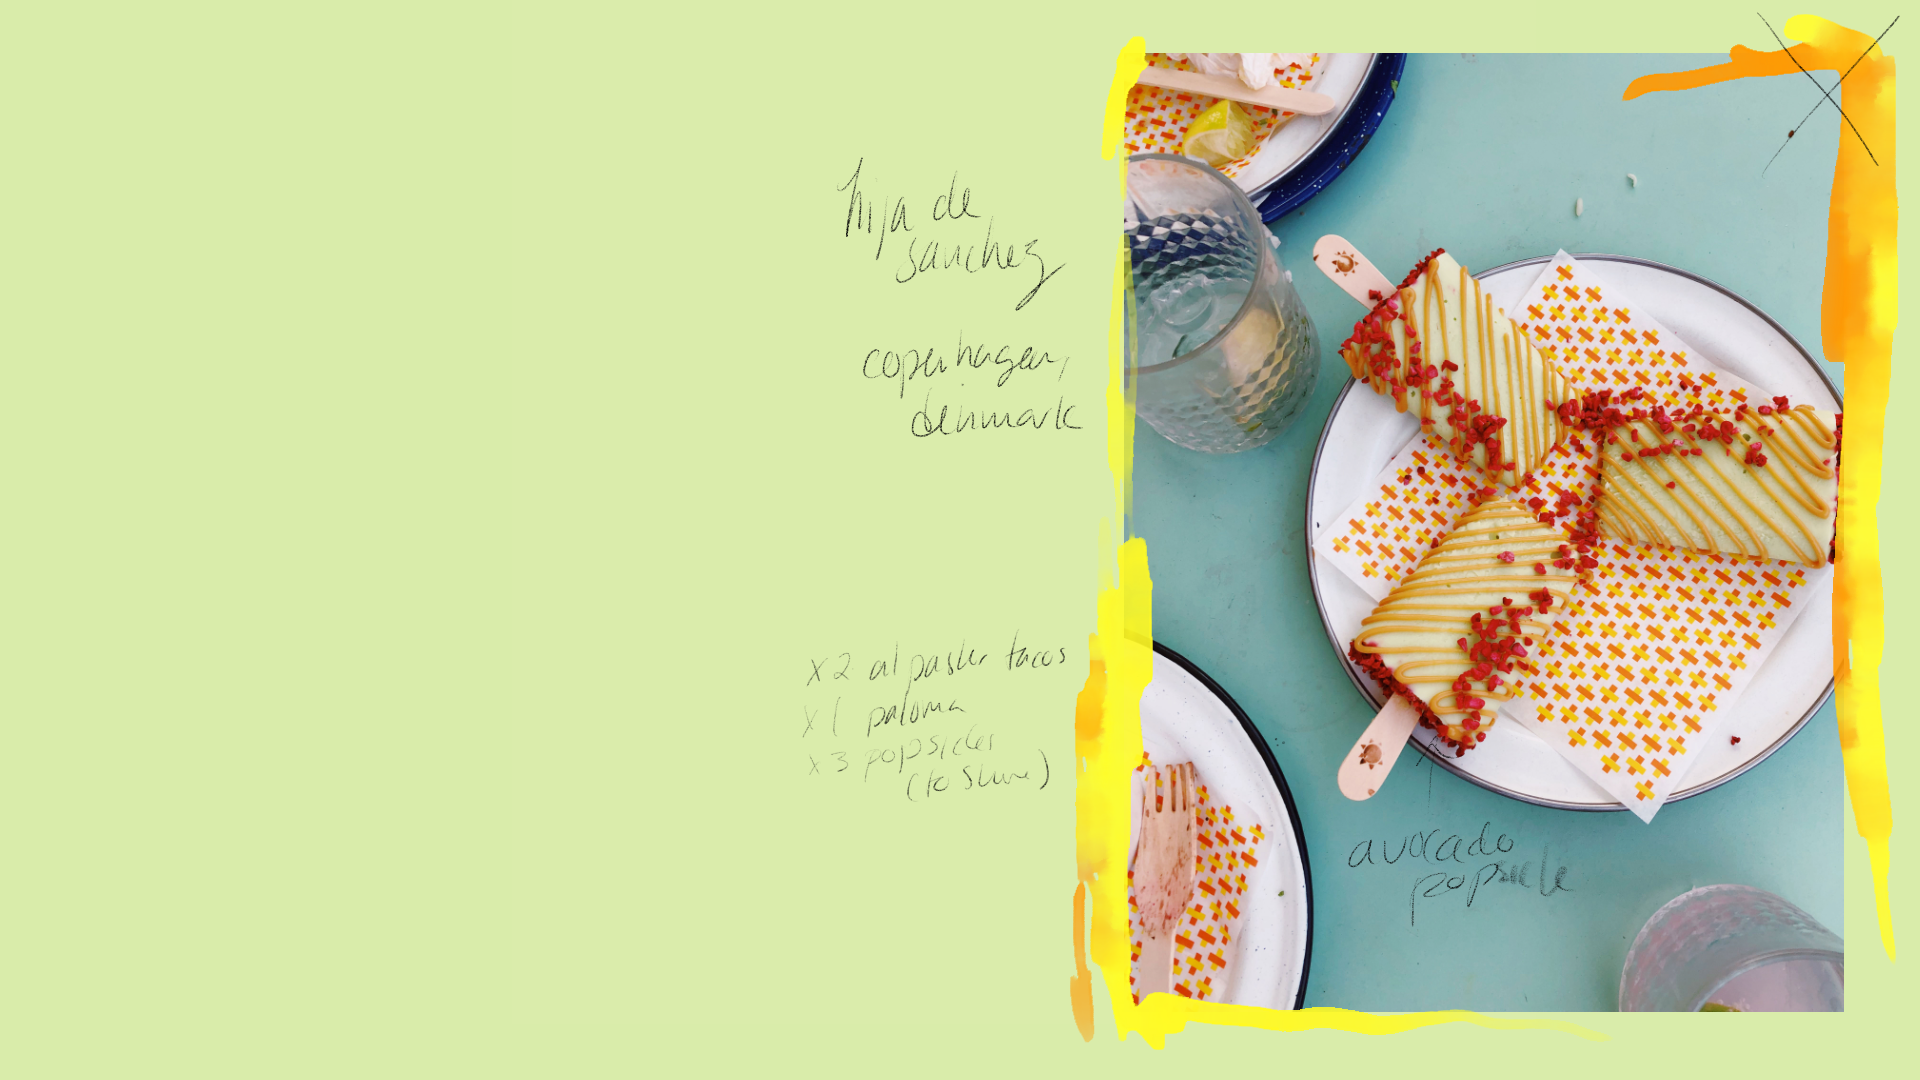 hija de
sanchez
copenhagen,
denmark
x2 al pastor tacos
x1 paloma
x3 popsicles
(to share)
avocado
popsicle